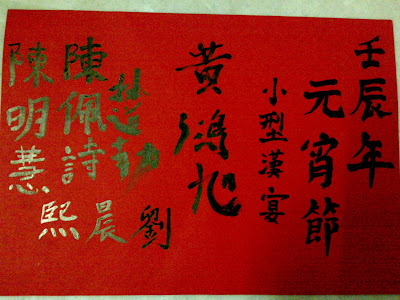 壬辰年
元宵節
小型漢宴
黃鴻旭
劉晨熙
陳佩詩
陳明慧